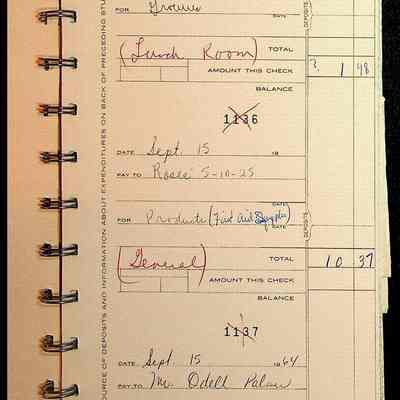 FOR Groceries
DATE
DEPOSITS
(Lunch Room) TOTAL
AMOUNT THIS CHECK 1 48
BALANCE
1136
DATE Sept. 15 19
PAY TO Roses 5-10-25
DATE
FOR Products (First Aid Supplies)
DATE
DEPOSITS
(General) TOTAL 10 37
AMOUNT THIS CHECK
BALANCE
1137
DATE Sept. 15 1964
PAY TO Mr. Odell
OURCE OF DEPOSITS AND INFORMATION ABOUT EXPENDITURES ON BACK OF PRECEDING STU